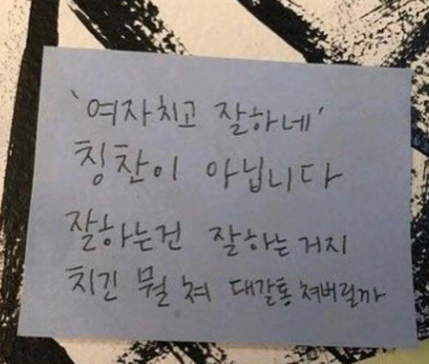 '여자치고 잘하네'
칭찬이 아닙니다
잘하는건 잘하는거지
치긴 뭘 쳐 대갈통 쳐버릴까